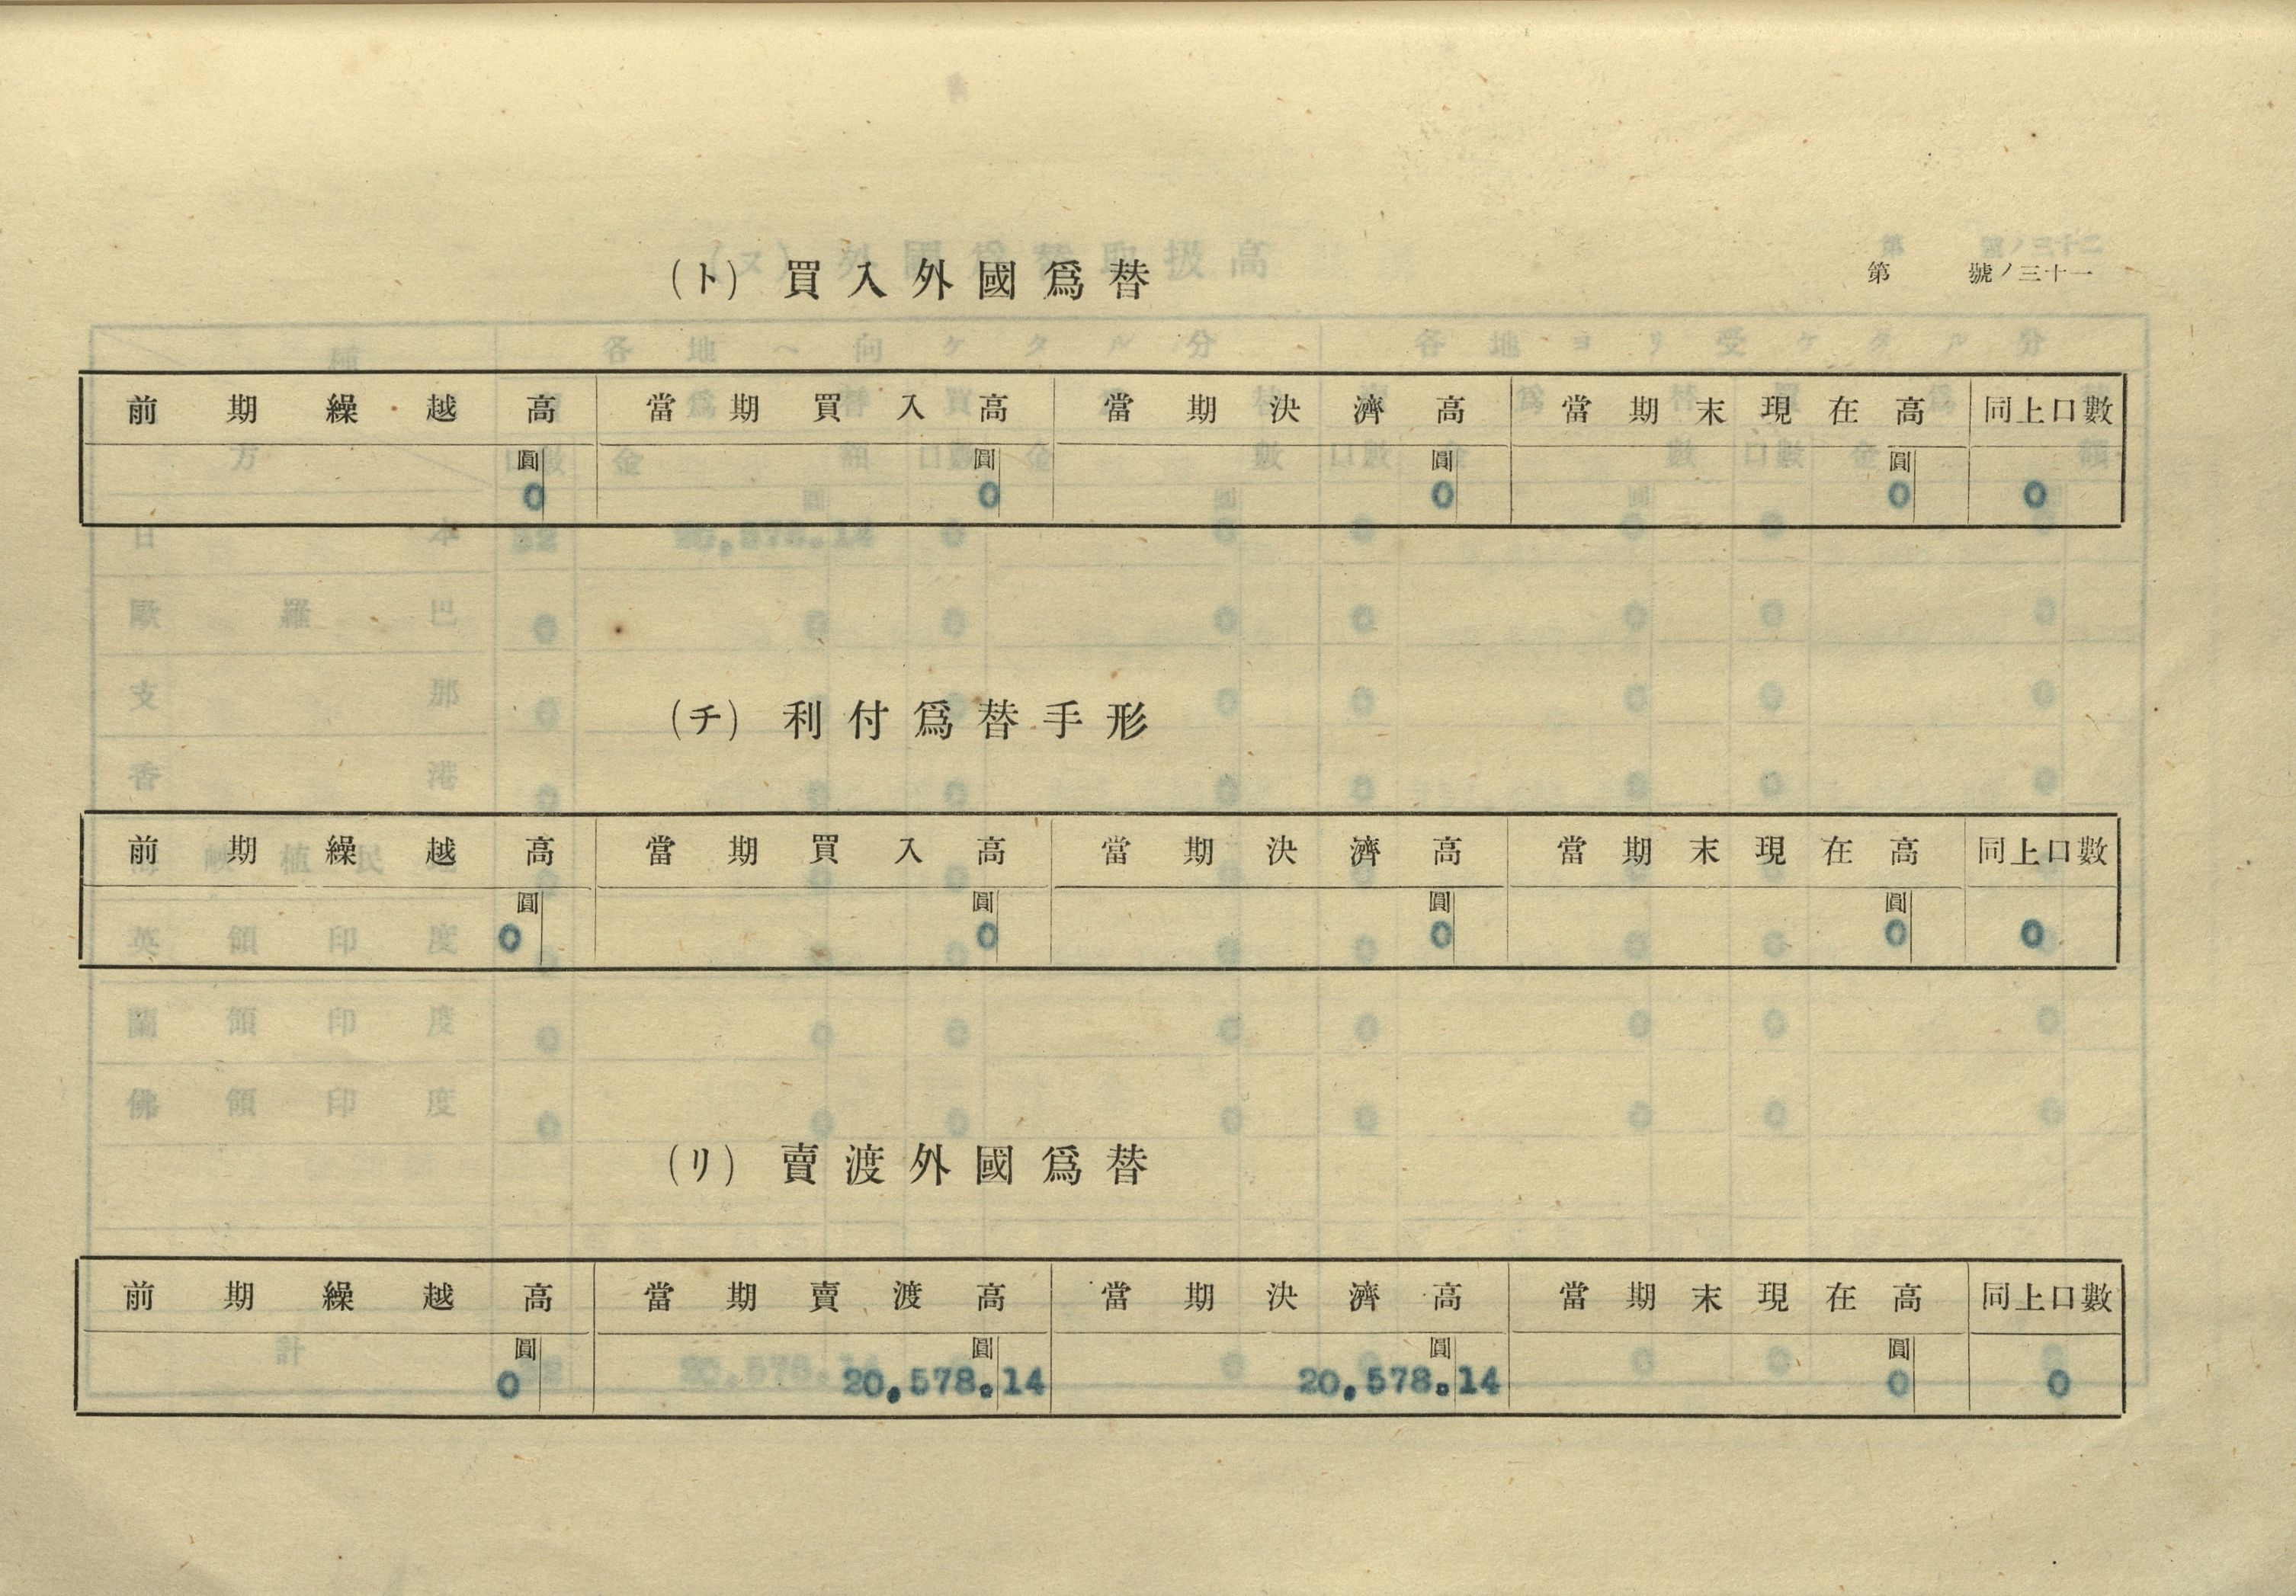 第　號ノ三十一
(ト) 買入外國爲替
前期繰越高 當期買入高 當期決濟高 當期末現在高 同上口數
圓 圓 圓 圓
0 0 0 0 0
(チ) 利付爲替手形
前期繰越高 當期買入高 當期決濟高 當期末現在高 同上口數
圓 圓 圓 圓
0 0 0 0 0
(リ) 賣渡外國爲替
前期繰越高 當期賣渡高 當期決濟高 當期末現在高 同上口數
圓 圓 圓 圓
0 20,578.14 20,578.14 0 0